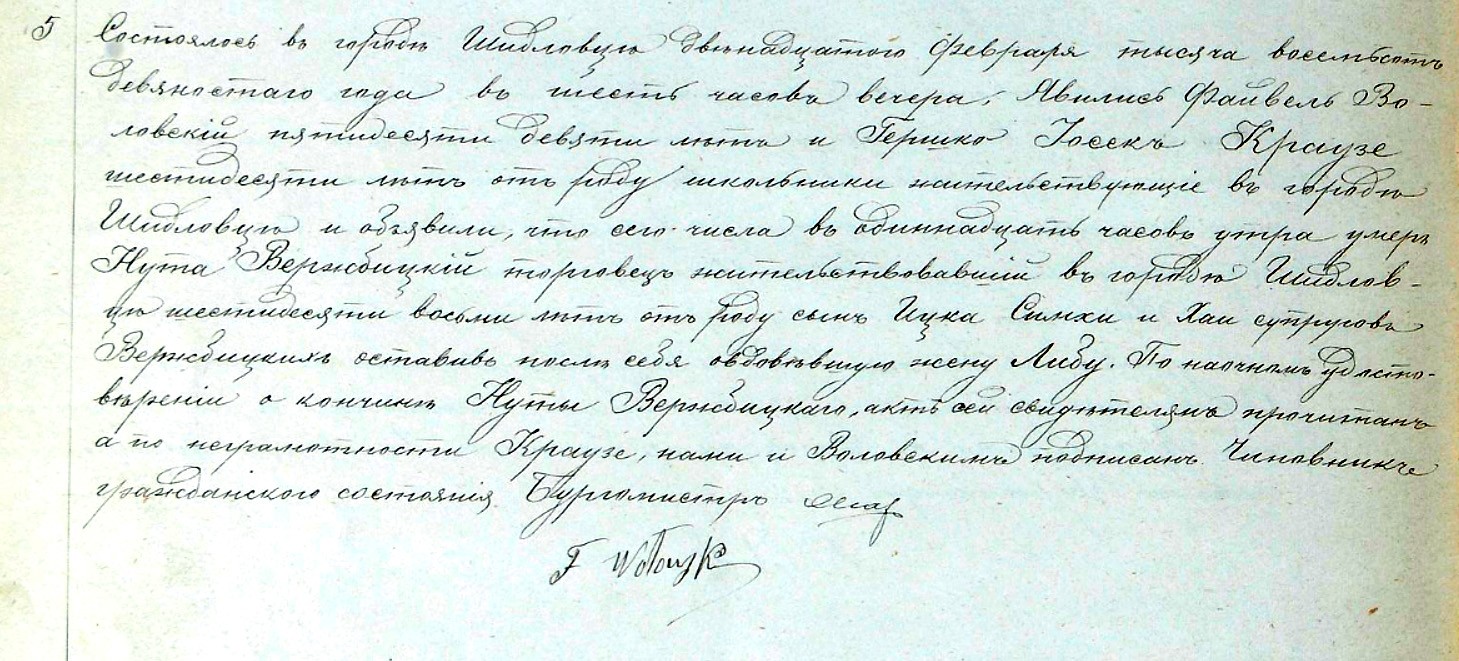 5 Состоялось въ городѣ Шидловцѣ двѣнадцатого февраля тысяча восемьсотъ
девяностаго года въ шесть часовъ вечера, Явились Файвель Во-
ловскій пятидесяти девяти лѣтъ и Гершко Іосекъ Краузе
шестидесяти лѣтъ отъ роду школьники жительствующіе въ городѣ
Шидловцѣ и объявили, что сего числа въ одиннадцать часовъ утра умеръ
Нута Вержбицкій торговецъ жительствовавшій въ городѣ Шидлов-
цѣ шестидесяти восьми лѣтъ отъ роду сынъ Ицка Симхи и Хаи супруговъ
Вержбицкихъ оставивъ послѣ себя овдовѣвшую жену Либу. По наочномъ удосто-
вѣреніи о кончинѣ Нуты Вержбицкаго, актъ сей свидѣтелямъ прочитанъ
а по неграмотности Краузе, нами и Воловскимъ подписанъ. Чиновникъ
гражданского состоянія Бургомистръ
F